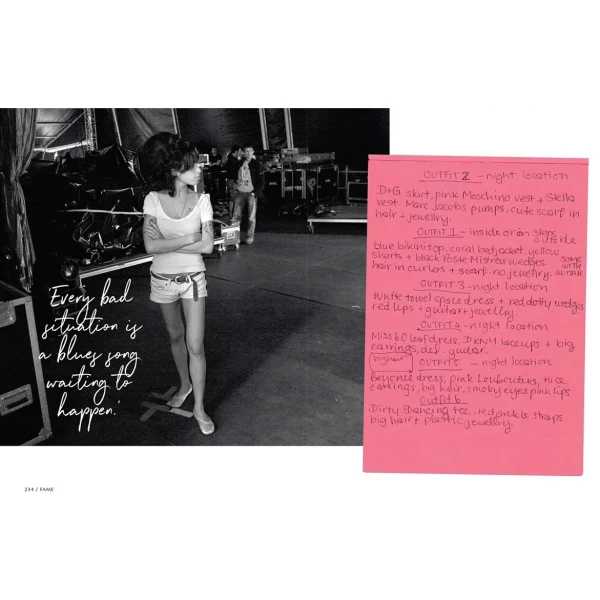 'Every bad
situation is
a blues song
waiting to
happen.'
234 / FAME
OUTFIT 2 - night location
D+G skirt, pink Moschino vest + Stella
vest. Marc Jacobs pumps. cute scarf in
hair + jewellry.
OUTFIT 1 - inside or on steps outside
blue bikini top, coral bed jacket. yellow
shorts + black Rosie Mistress wedges. some with guitar
hair in curlers + scarf. no jewellry.
OUTFIT 3 - night location
white towel space dress + red dotty wedges
red lips + guitar + jewellry.
OUTFIT 4 - night location
Miss 60 leaf dress, DKNY laceups + big
earrings, def. guitar.
OUTFIT 5 - night location
Beyoncé dress, pink Louboutins, nice
earrings, big hair, smoky eyes pink lips
OUTFIT 6.
Dirty Dancing tee, red straps
big hair + plastic jewellry.